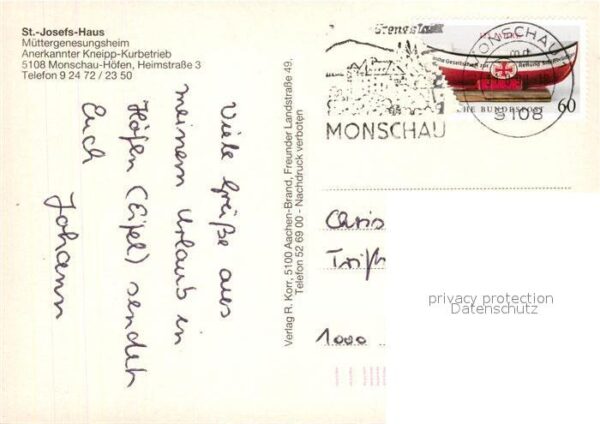 St.-Josefs-Haus
Müttergenesungsheim
Anerkannter Kneipp-Kurbetrieb
5108 Monschau-Höfen, Heimstraße 3
Telefon 9 24 72 / 23 50
Viele Grüße aus
meinem Urlaub in
Höfen (Eifel) sendet
Euch
Johann
Verlag R. Korr, 5100 Aachen-Brand, Freunder Landstraße 49,
Telefon 52 69 00 - Nachdruck verboten
MONSCHAU
MONSCHAU
5108
60
Chris
1000
privacy protection
Datenschutz